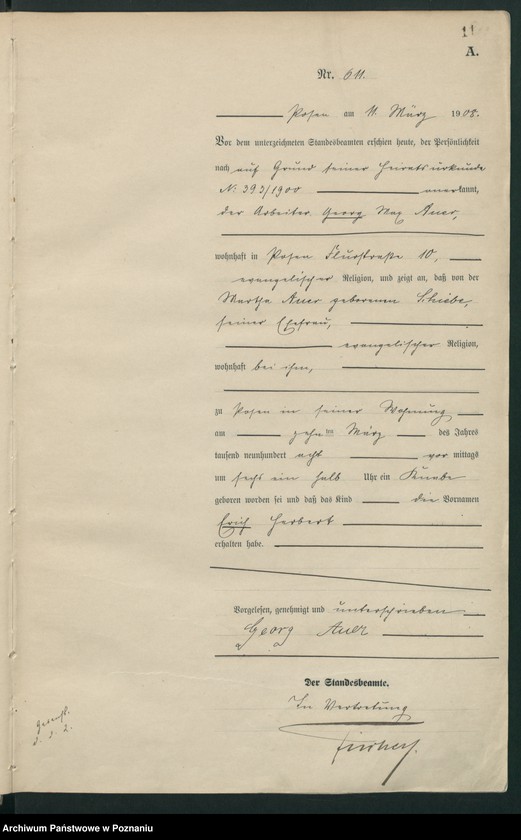 11
A.
Nr. 611.
Posen am 11. März 1908.
Vor dem unterzeichneten Standesbeamten erschien heute, der Persönlichkeit
nach auf Grund seiner Heiratsurkunde
No: 393/1900 anerkannt,
der Arbeiter Georg Max Auer,
wohnhaft in Posen Flurstraße 10,
evangelischer Religion, und zeigt an, daß von der
Martha Auer geborenen
seiner Ehefrau,
evangelischer Religion,
wohnhaft bei ihm,
zu Posen in seiner Wohnung
am zehnten März des Jahres
tausend neunhundert acht vor mittags
um sechs ein halb Uhr ein Knabe
geboren worden sei und daß das Kind die Vornamen
Erich Herbert
erhalten habe.
Vorgelesen, genehmigt und unterschrieben
Georg Auer
Der Standesbeamte.
In Vertretung
Archiwum Państwowe w Poznaniu